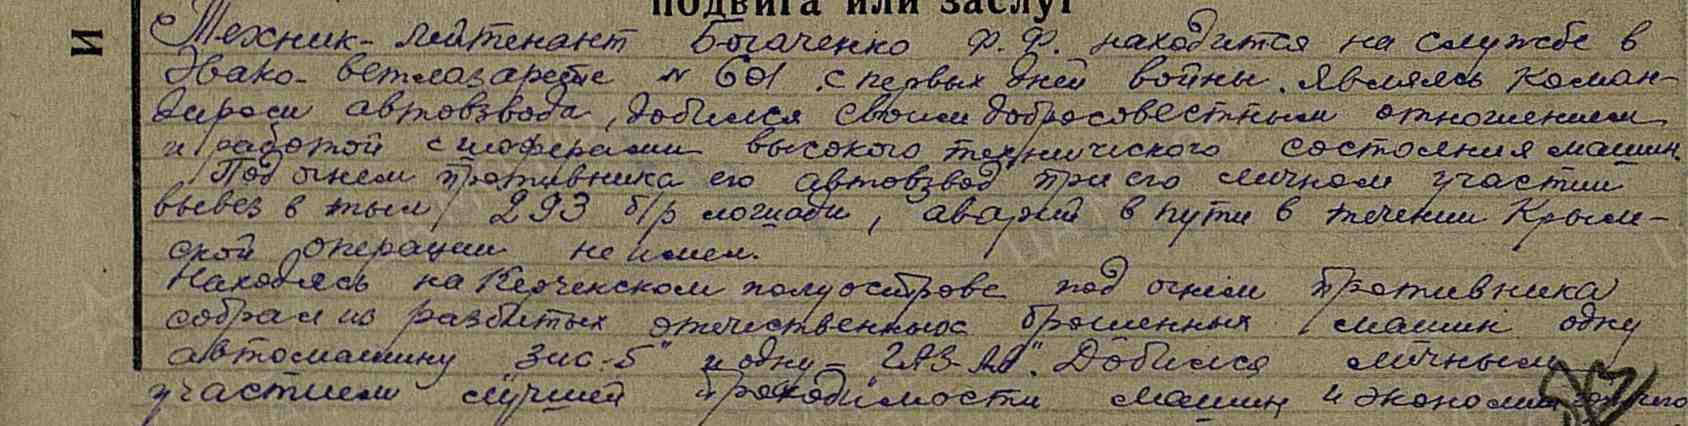 подвига или заслуг
И
Техник-лейтенант Богаченко Ф.Ф. находится на службе в
Эвако-ветлазарете № 601 с первых дней войны. Являясь коман-
диром автовзвода, добился своим добросовестным отношением
и работой с шоферами высокого технического состояния машин.
Под огнем противника его автовзвод при его личном участии
вывез в тыл 293 б/р лошади, аварий в пути в течении Крым-
ской операции не имел.
Находясь на Керченском полуострове под огнем противника
собрал из разбитых отечественных брошенных машин одну
автомашину "Зис-5" и одну "ГАЗ-АА". Добился личным
участием лучшей проходимости машин и экономии горючего